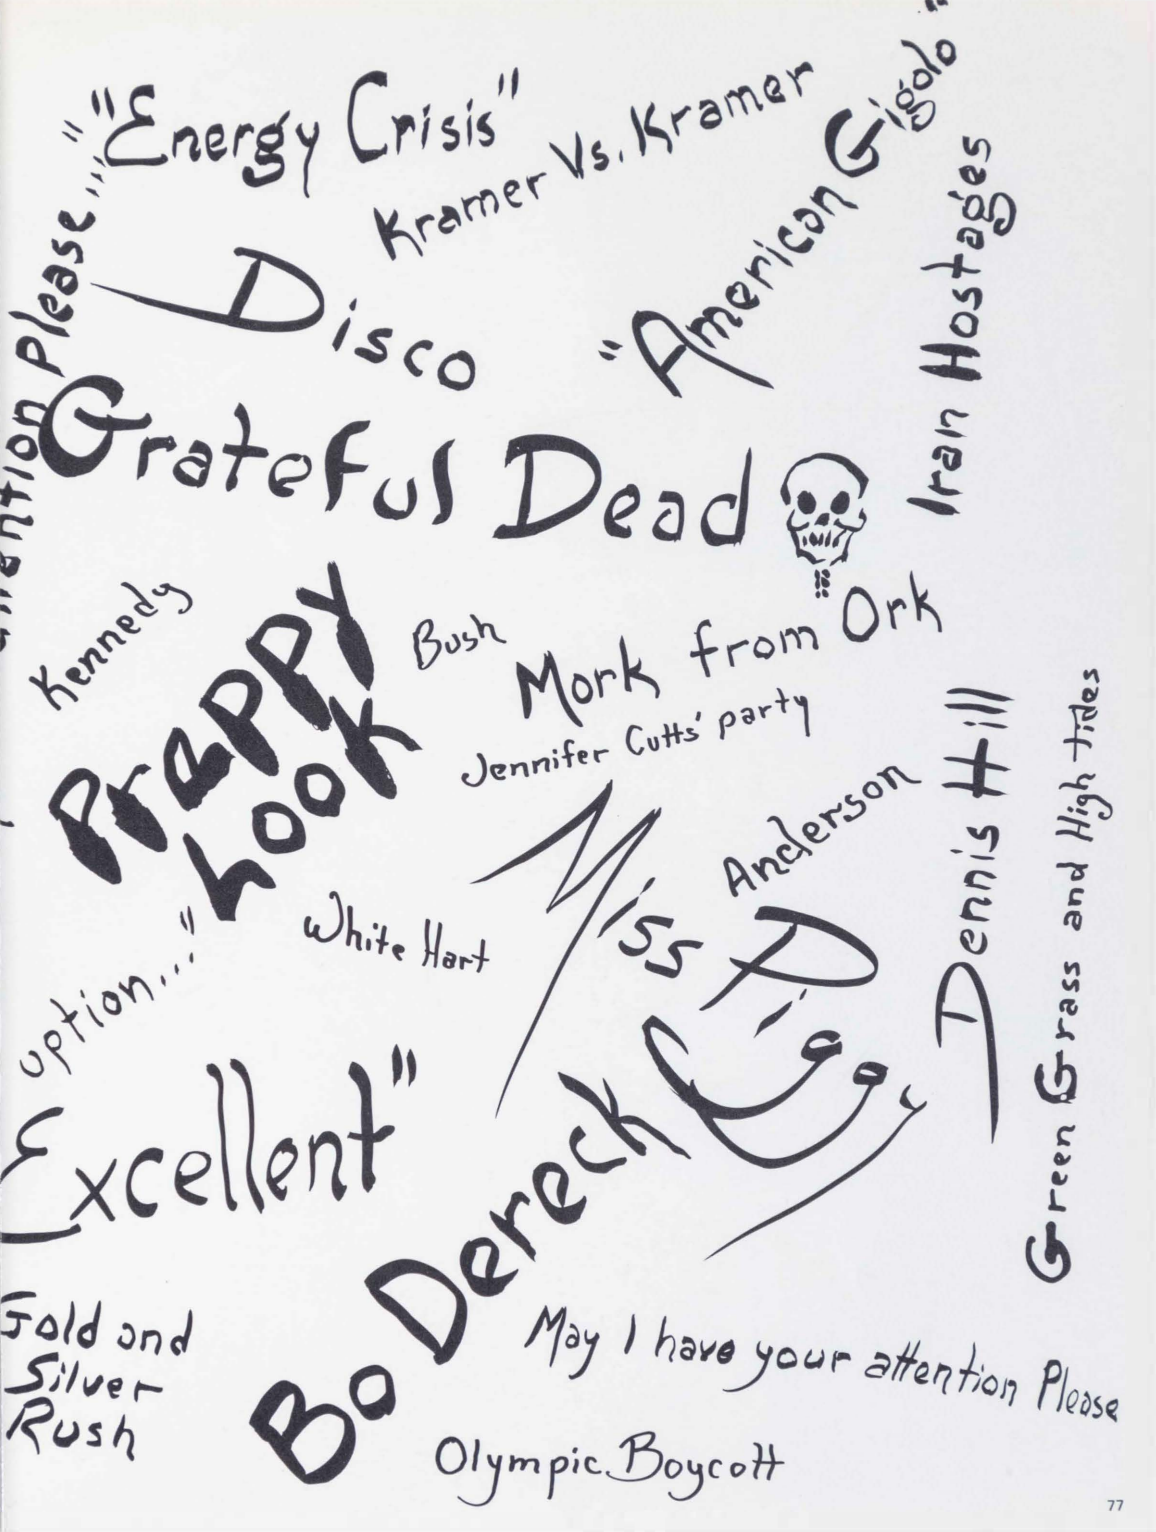 "Energy Crisis"
Kramer Vs. Kramer
"American Gigolo"
Iran Hostages
Please..."
Disco
Grateful Dead
Kennedy
Preppy
Look
Bush
Mork from Ork
Jennifer Cutts' party
Miss Piggy
Anderson
Dennis Hill
Green Grass and High tides
White Hart
option..."
Excellent"
Bo Dereck
Gold and
Silver
Rush
May I have your attention Please
Olympic Boycott
77